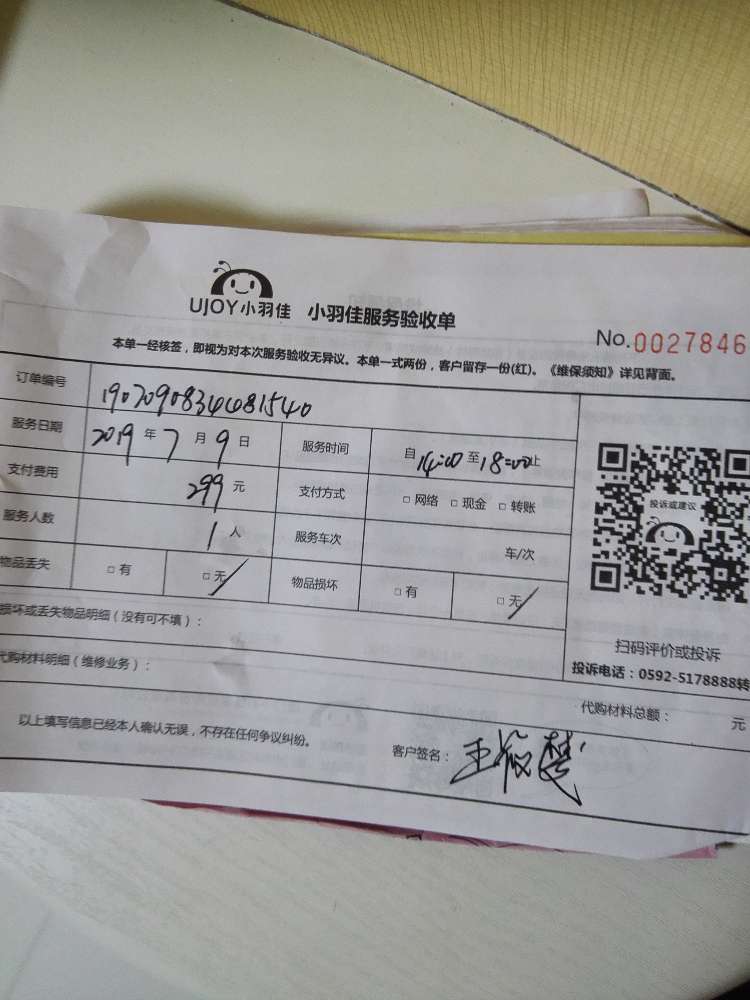 UJOY小羽佳 小羽佳服务验收单
No.0027846
本单一经核签，即视为对本次服务验收无异议。本单一式两份，客户留存一份(红)。《维保须知》详见背面。
订单编号
服务日期 2019 年 7 月 9 日 服务时间 自 14:00 至 18:00 止
支付费用 299 元 支付方式 □ 网络 □ 现金 □ 转账
服务人数 1 人 服务车次 车/次
物品丢失 □ 有 □ 无 物品损坏 □ 有 □ 无
投诉或建议
扫码评价或投诉
投诉电话：0592-5178888转
损坏或丢失物品明细（没有可不填）：
代购材料明细（维修业务）：
代购材料总额： 元
以上填写信息已经本人确认无误，不存在任何争议纠纷。
客户签名： 王